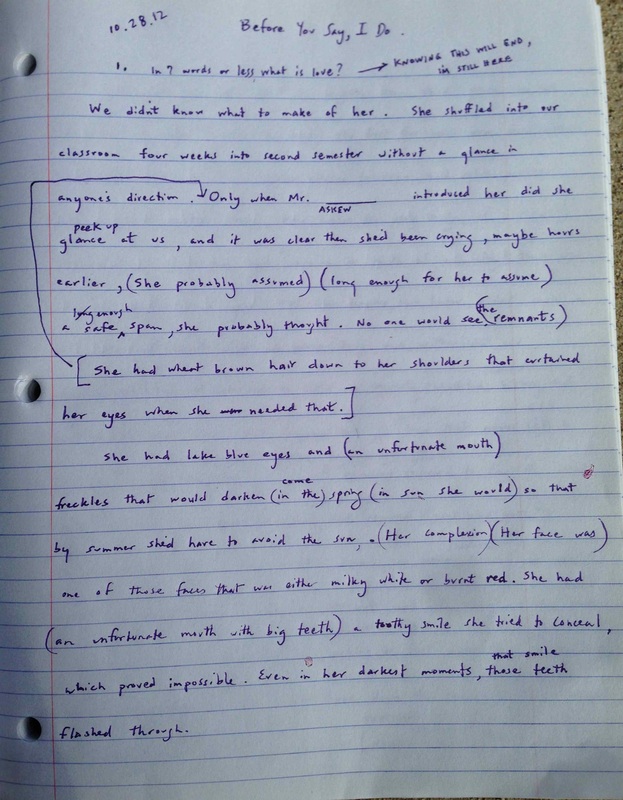 10.28.12
Before You Say, I Do.
1. In 7 words or less, what is love? → KNOWING THIS WILL END,
I'M STILL HERE
We didn't know what to make of her. She shuffled into our
classroom four weeks into second semester without a glance in
anyone's direction. Only when Mr. ______ introduced her did she
ASKEW
peek up
glance at us, and it was clear then she'd been crying, maybe hours
earlier, (She probably assumed) (long enough for her to assume)
long enough
a safe span, she probably thought. No one would see (the remnants)
[She had wheat brown hair down to her shoulders that curtained
her eyes when she needed that.]
She had lake blue eyes and (an unfortunate mouth)
come
freckles that would darken (in the) spring (in sun she would) so that
by summer she'd have to avoid the sun, . (Her complexion) (Her face was)
one of those faces that was either milky white or burnt red. She had
(an unfortunate mouth with big teeth) a toothy smile she tried to conceal,
which proved impossible. Even in her darkest moments, those teeth
that smile
flashed through.